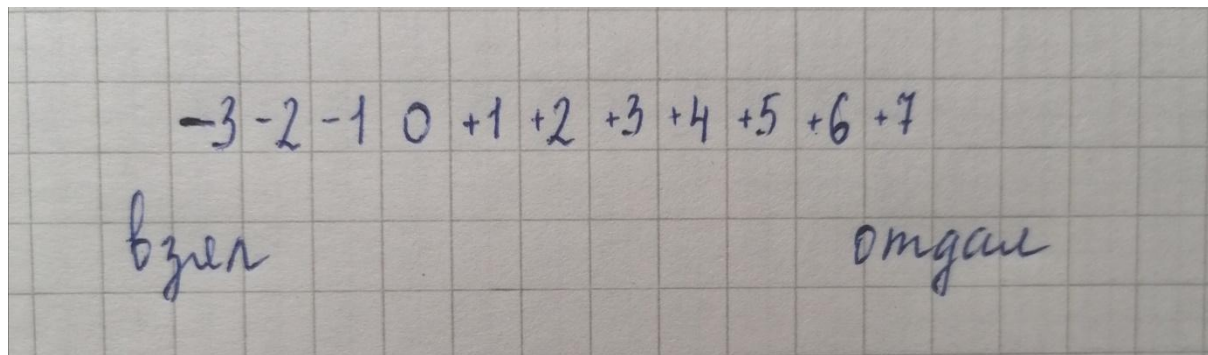 -3 -2 -1 0 +1 +2 +3 +4 +5 +6 +7
взял отдал